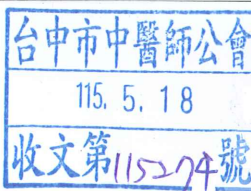 台中市中醫師公會
115. 5. 18
收文第115274號